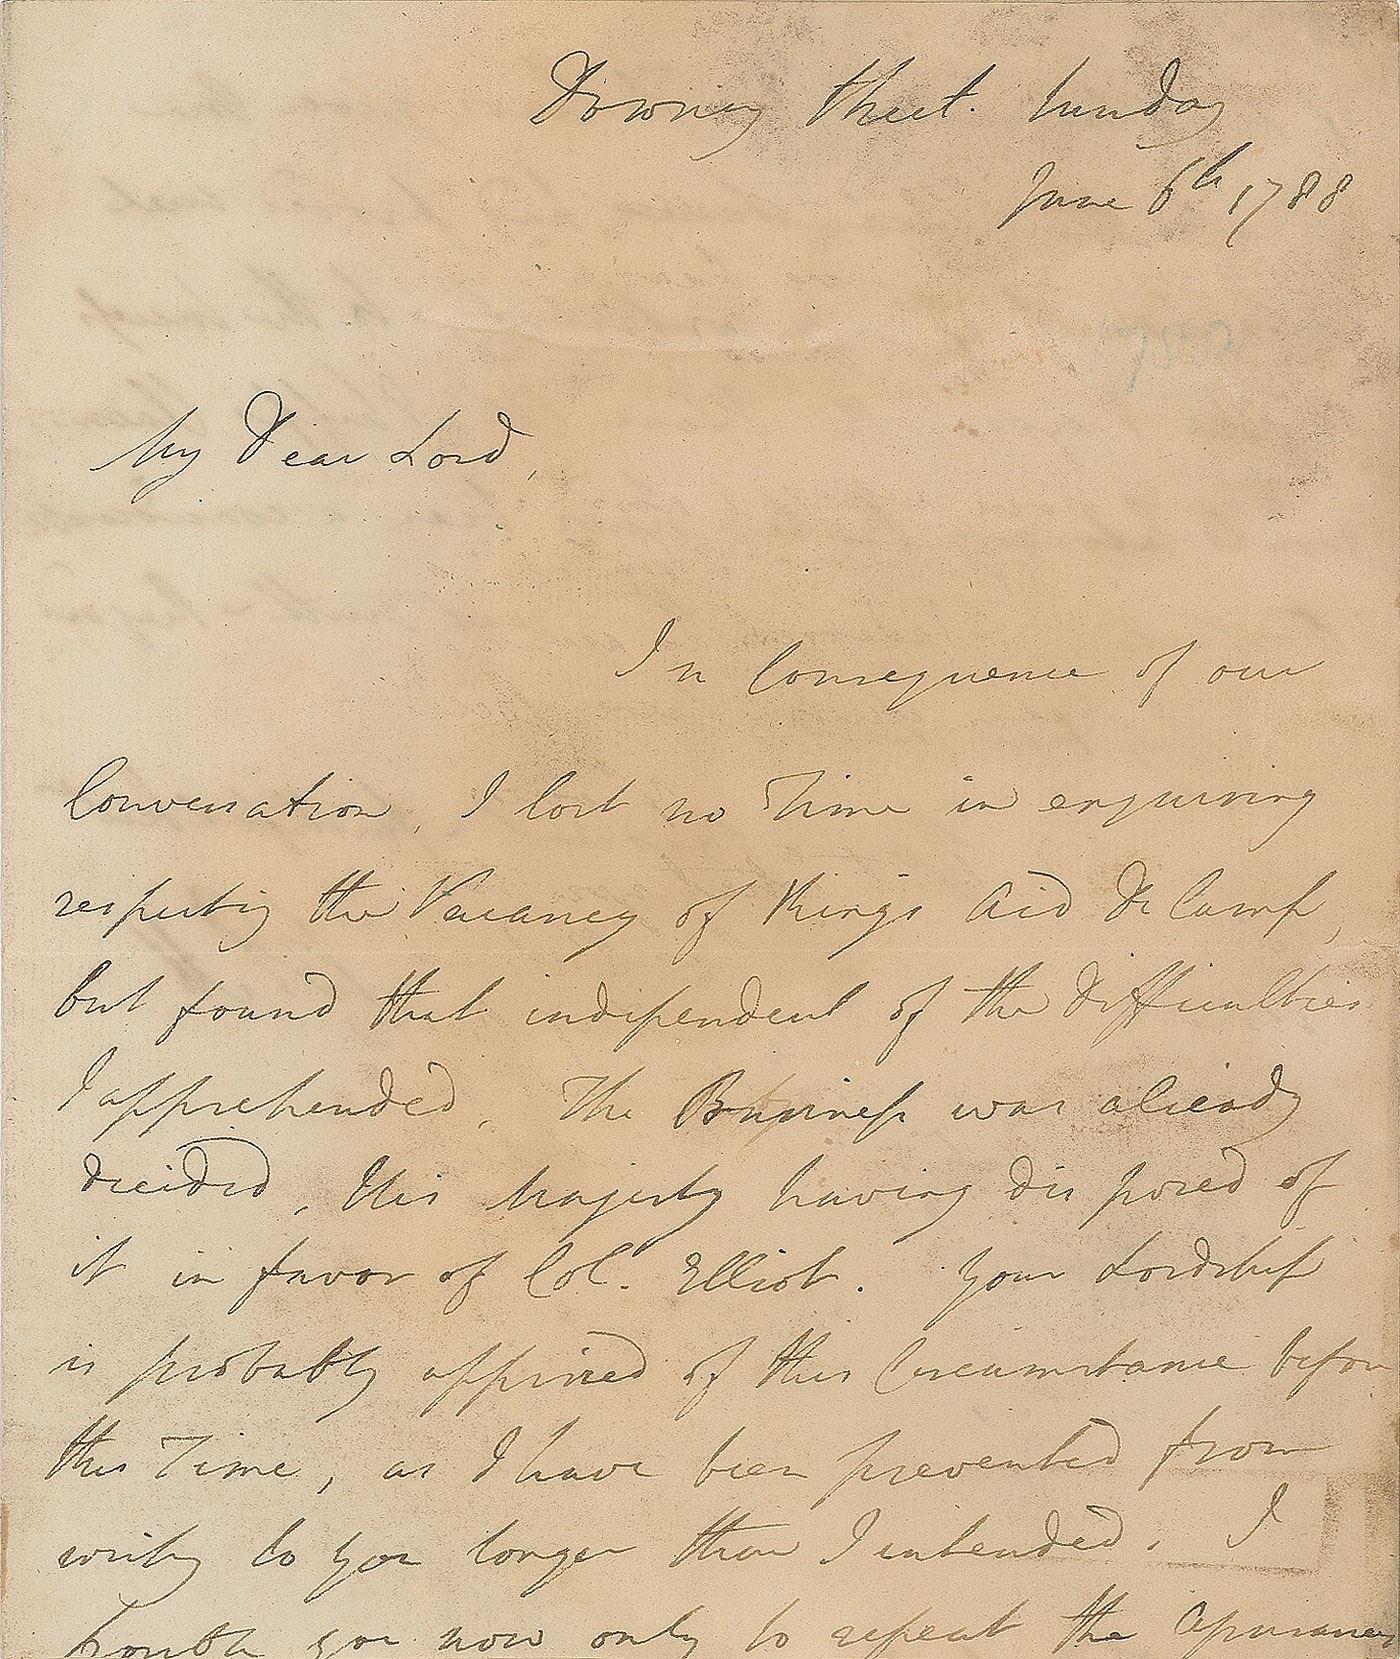 Downing Street. Sunday
June 6th 1788
My Dear Lord,
In Consequence of our
Conversation, I lost no Time in enquiring
respecting the Vacancy of King's Aid De Camp,
but found that independent of the Difficulties
I apprehended, The Business was already
decided, His Majesty having disposed of
it in favor of Col. Elliot. Your Lordship
is probably apprised of this Circumstance before
this Time, as I have been prevented from
writing to you longer than I intended. I
trouble you now only to repeat the Assurances